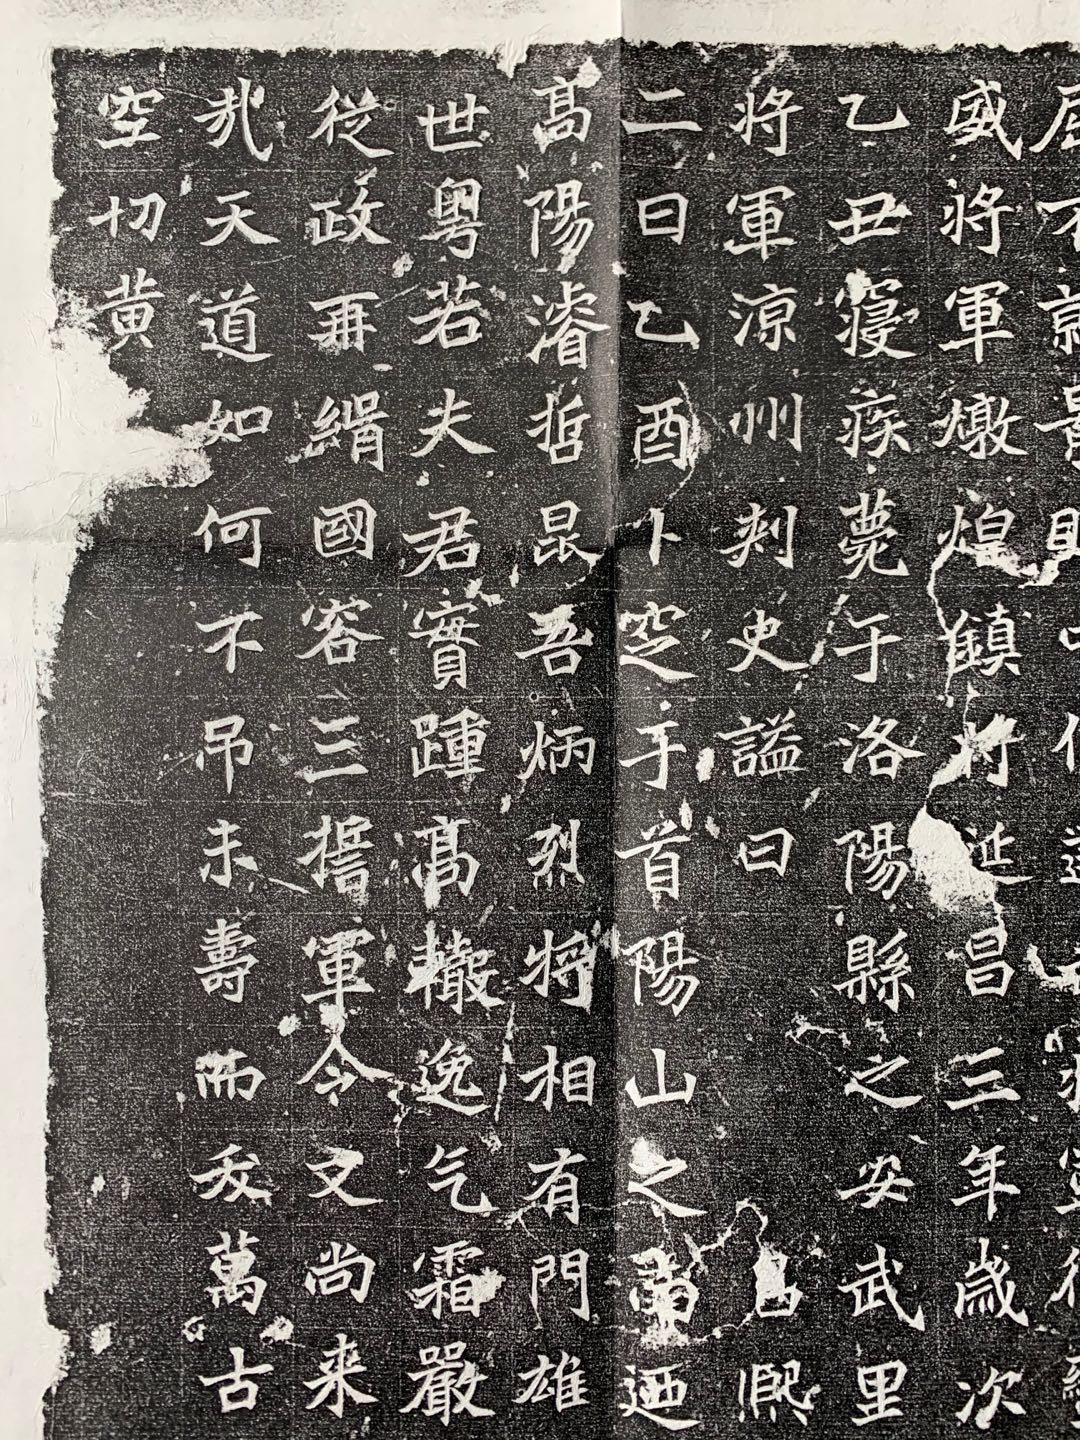 威將軍燉煌鎮將延昌三年歲次
乙丑寢疾薨于洛陽縣之安武里
將軍涼州刾史謚曰 熙
二日乙酉卜窆于首陽山之南迺
髙陽濬哲昆吾炳烈將相有門雄
世粤若夫君實踵髙轍逸气霜嚴
從政再緝國容三軍令又尚来
㢤天道如何不吊未壽而夭萬古
空切黄